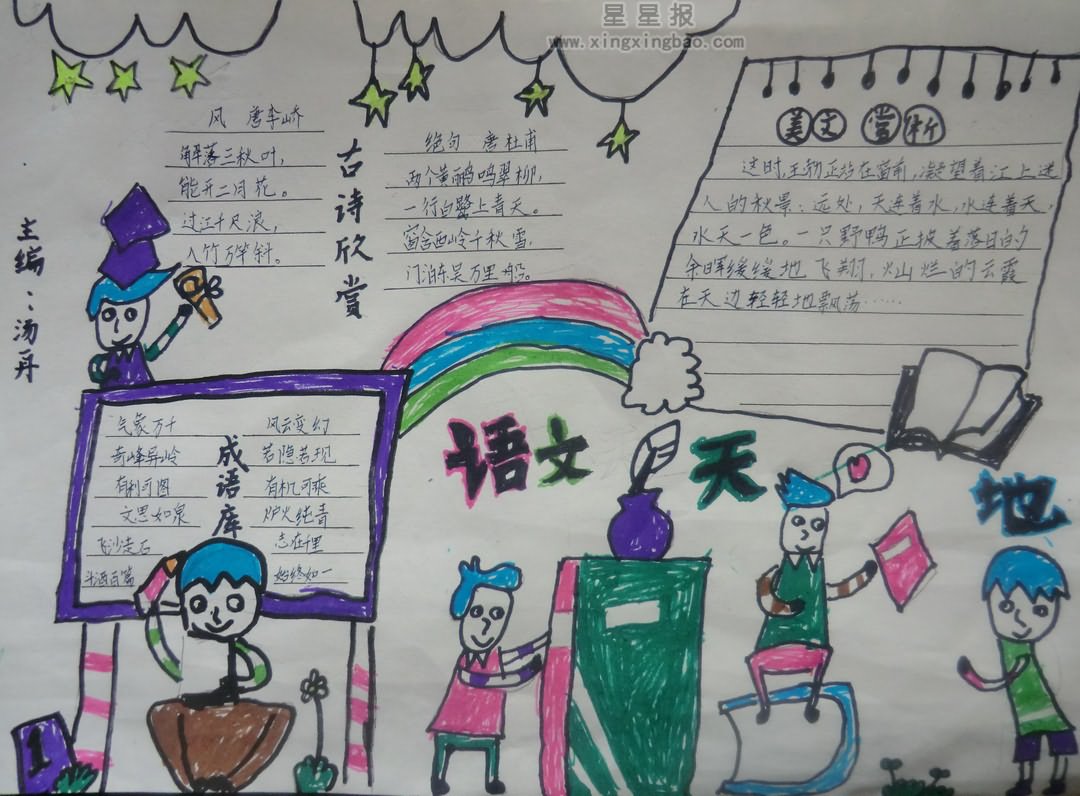 星星报
www.xingxingbao.com
主编：汤丹
风 唐李峤
解落三秋叶，
能开二月花。
过江千尺浪，
入竹万竿斜。
古诗欣赏
绝句 唐杜甫
两个黄鹂鸣翠柳，
一行白鹭上青天。
窗含西岭千秋雪，
门泊东吴万里船。
美文赏析
这时，王勃正站在窗前，凝望着江上迷
人的秋景：远处，天连着水，水连着天，
水天一色。一只野鸭正披着落日的
余晖缓缓地飞翔，灿烂的云霞
在天边轻轻地飘荡……
成语库
气象万千 风云变幻
奇峰异岭 若隐若现
有利可图 有机可乘
文思如泉 炉火纯青
飞沙走石 志在千里
斗酒百篇 始终如一
语文天地
1